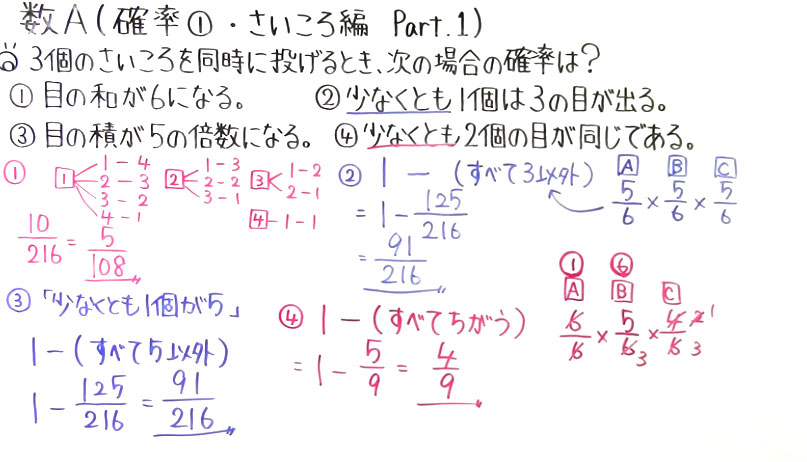 数A(確率①・さいころ編 Part.1)
問 3個のさいころを同時に投げるとき、次の場合の確率は?
① 目の和が6になる。 ② 少なくとも1個は3の目が出る。
③ 目の積が5の倍数になる。 ④ 少なくとも2個の目が同じである。
①
1 1-4
2-3
3-2
4-1
2 1-3
2-2
3-1
3 1-2
2-1
4 -1-1
10/216 = 5/108
② 1 - (すべて3以外) A B C
5/6 × 5/6 × 5/6
= 1 - 125/216
= 91/216
③ 「少なくとも1個が5」
1 - (すべて5以外)
1 - 125/216 = 91/216
④ 1 - (すべてちがう)
= 1 - 5/9 = 4/9
① ⑥
A B C
6/6 × 5/6 3 × 4/6 2 1 3